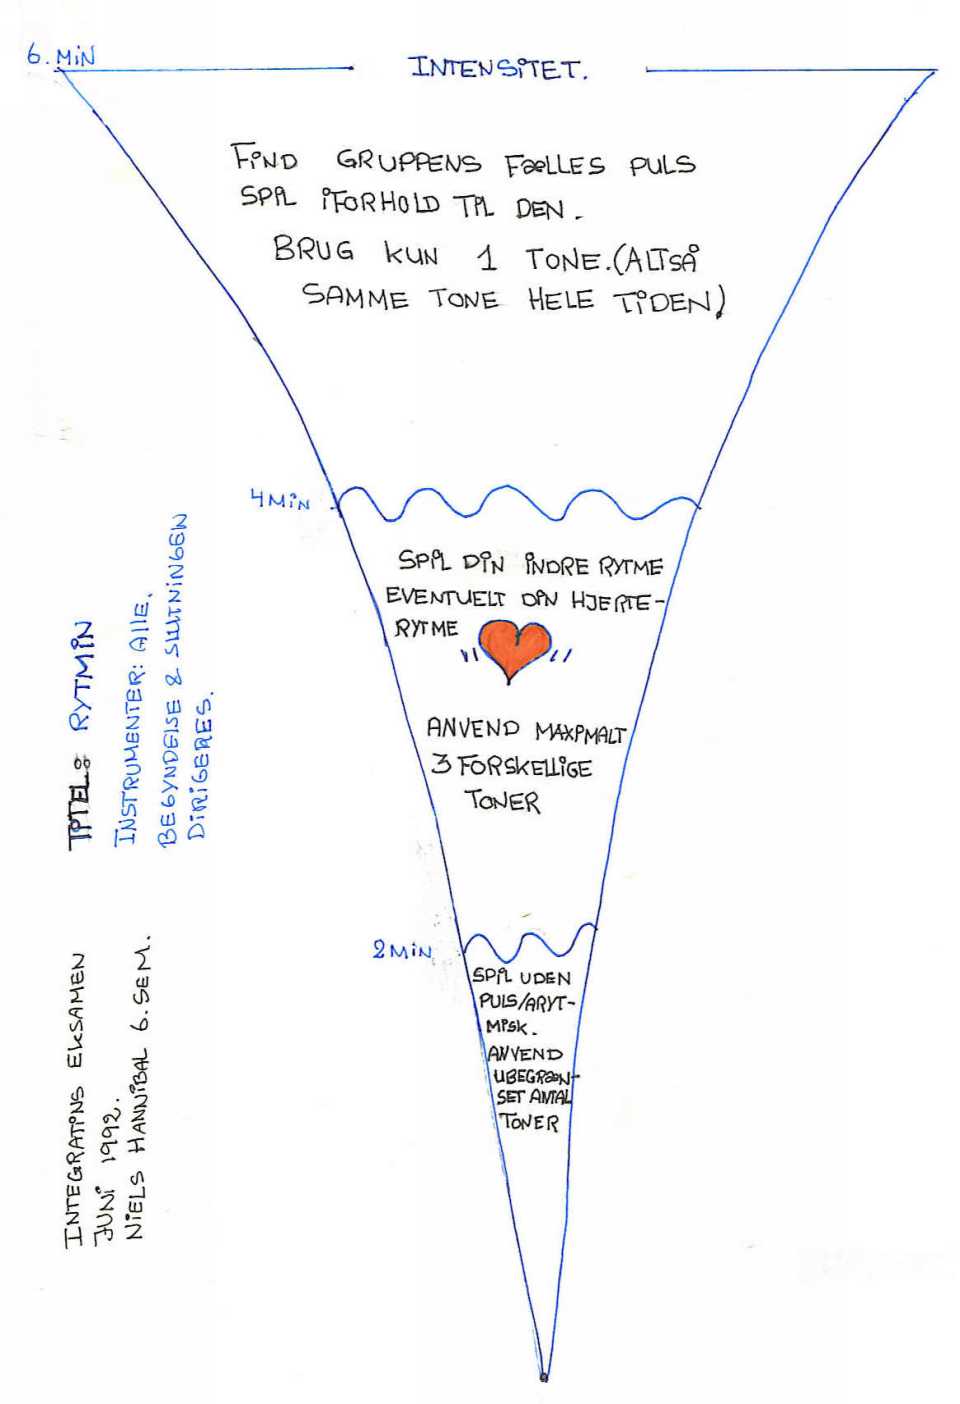 6. MIN
INTENSITET.
FIND GRUPPENS FÆLLES PULS
SPIL IFORHOLD TIL DEN.
BRUG KUN 1 TONE. (ALTSÅ
SAMME TONE HELE TIDEN)
4 MIN
SPIL DIN INDRE RYTME
EVENTUELT DIN HJERTE-
RYTME
ANVEND MAXIMALT
3 FORSKELLIGE
TONER
2 MIN
SPIL UDEN
PULS/ARYT-
MISK.
ANVEND
UBEGRÆN-
SET ANTAL
TONER
TITEL: RYTMIN
INSTRUMENTER: ALLE.
BEGYNDELSE & SLUTNINGEN
DIRIGERES.
INTEGRATINS EKSAMEN
JUNI 1992.
NIELS HANNIBAL 6. SEM.